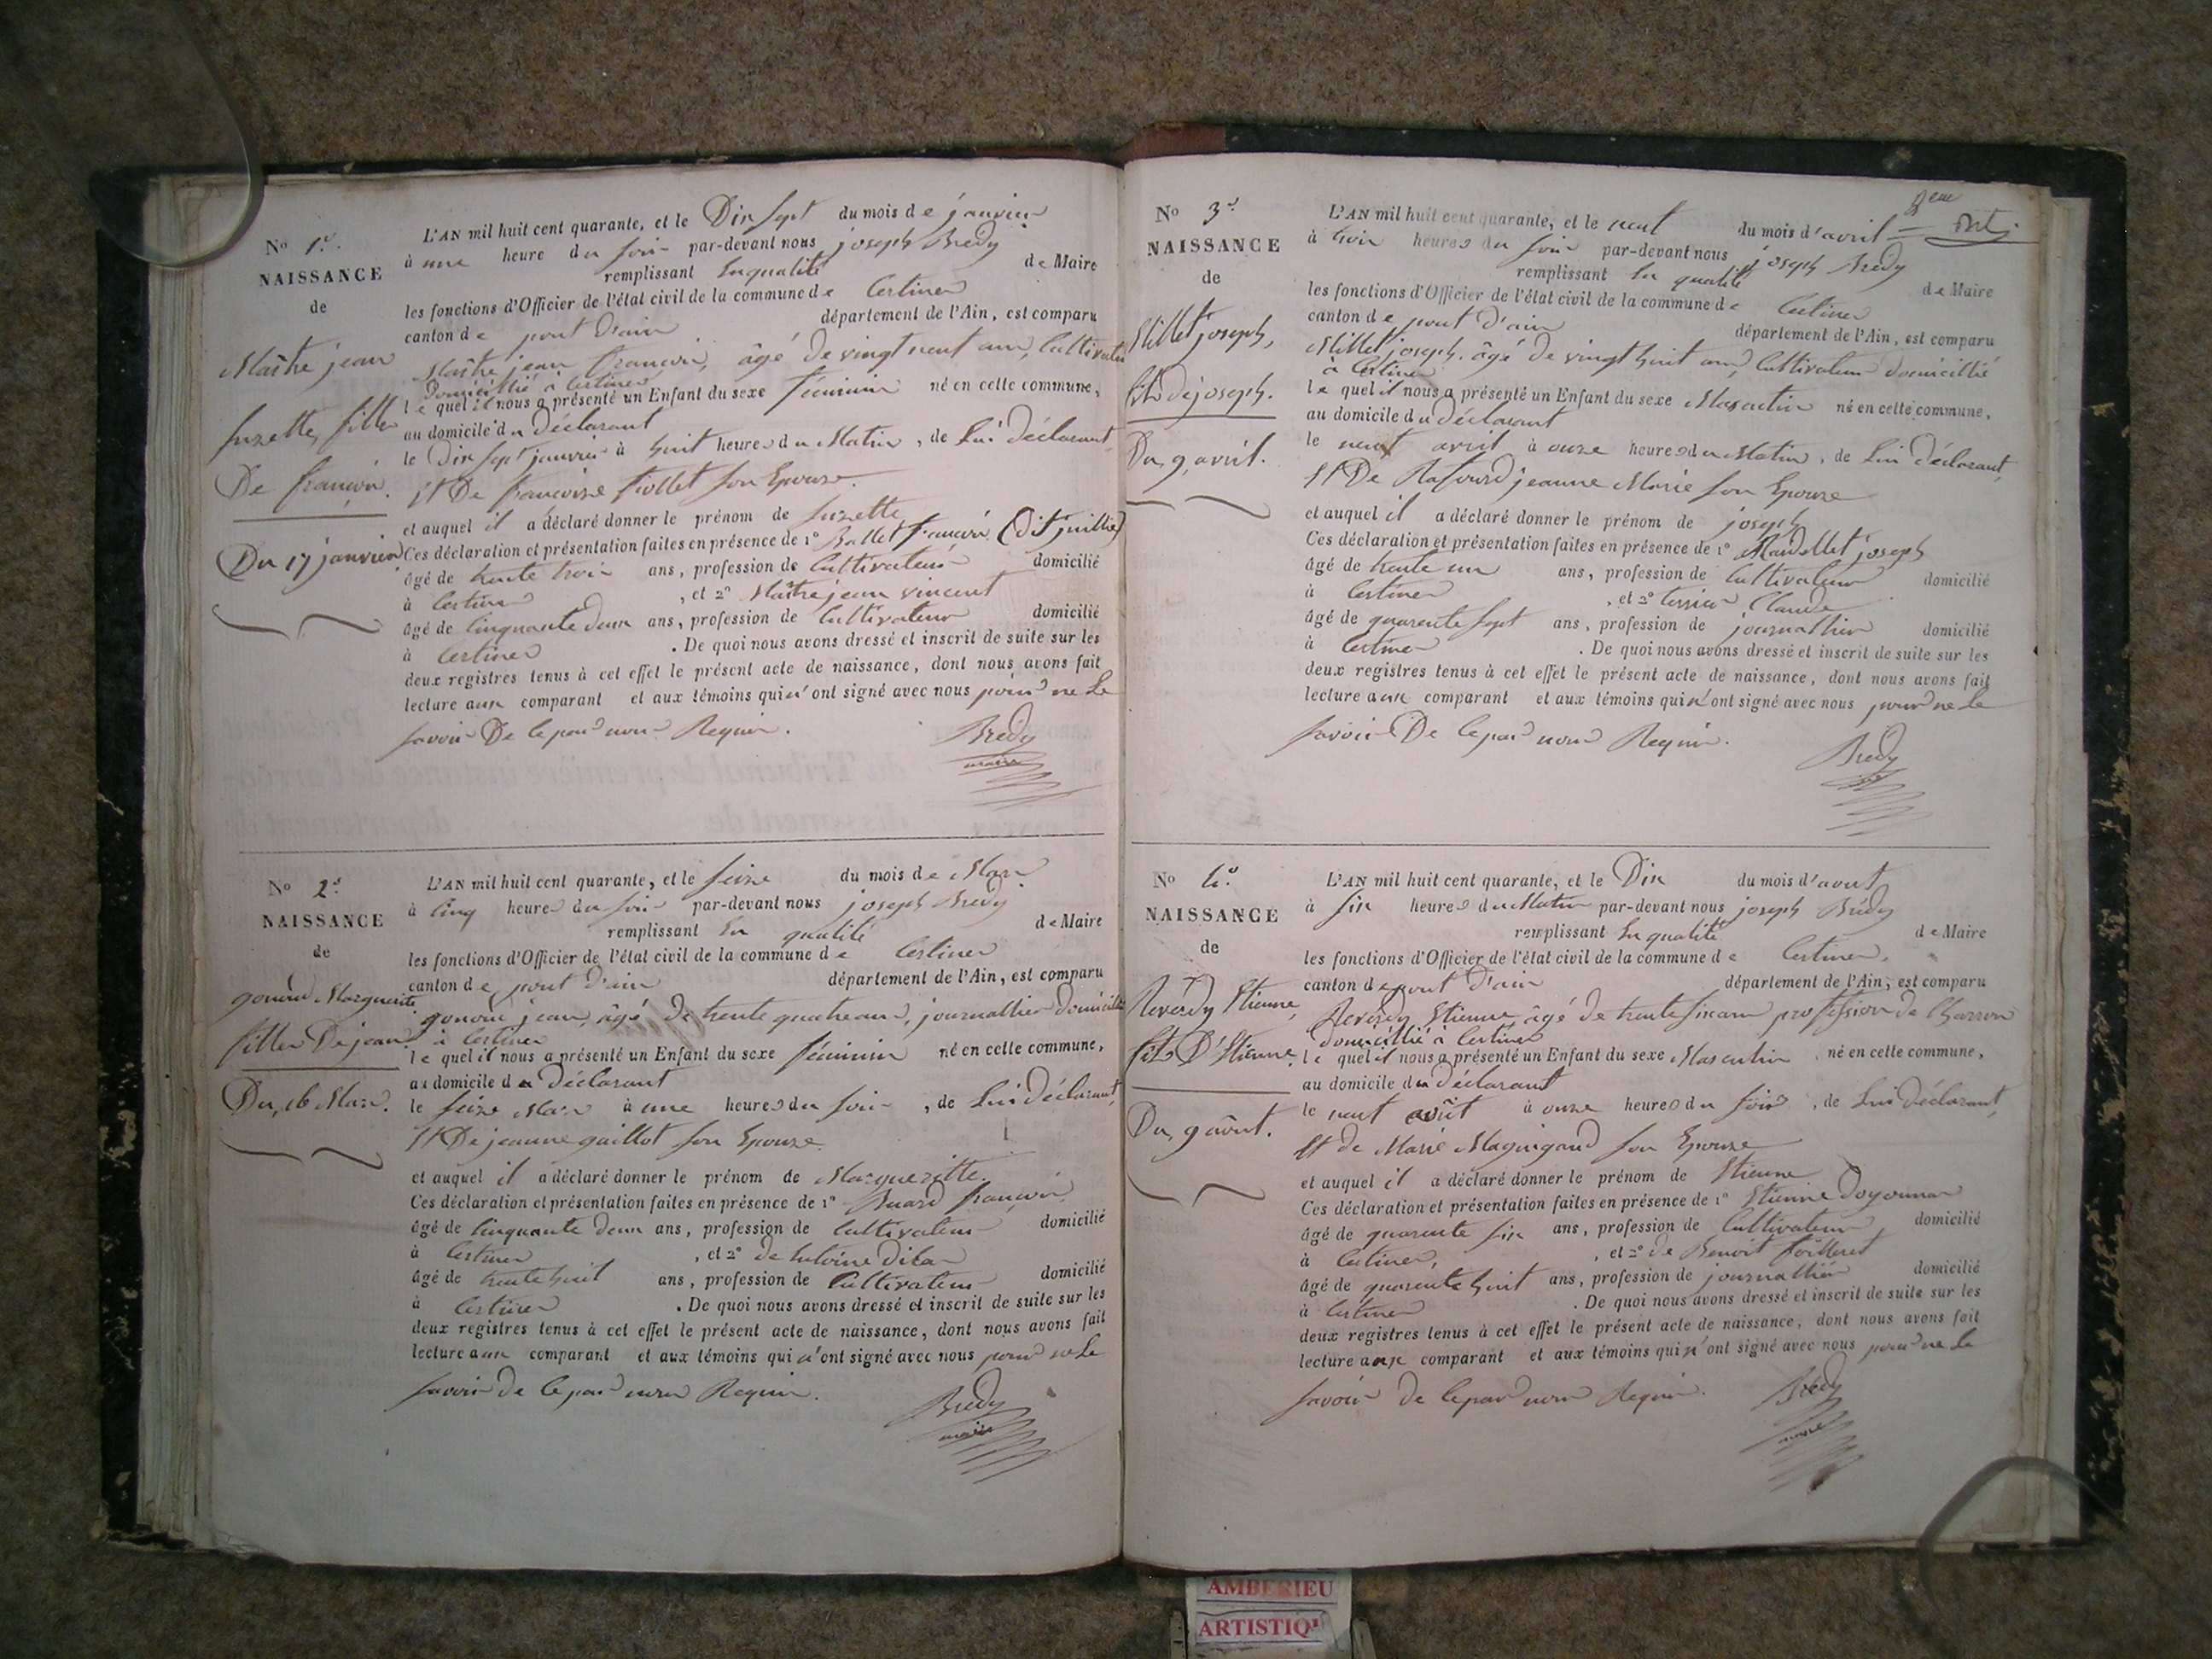 No 1er.
NAISSANCE
de
Maître jean
suzette, fille
De françois.
Du 17 janvier
L'AN mil huit cent quarante, et le Dix sept du mois de janvier
à une heure du soir par-devant nous joseph Bredy
remplissant En qualité de Maire
les fonctions d'Officier de l'état civil de la commune de Certines
canton de pont d'ain département de l'Ain, est comparu
Maître jean françois, âgé de vingt neuf ans, Cultivateur
Domicillié à Certines
le quel il nous a présenté un Enfant du sexe féminin né en cette commune,
au domicile du Déclarant
le Dix sept janvier à huit heures du Matin, de Lui Déclarant,
Et De françoise fiollet son Epouse.
et auquel il a déclaré donner le prénom de suzette
Ces déclaration et présentation faites en présence de 1° Ballet françois (dit juillie)
âgé de trente trois ans, profession de Cultivateur domicilié
à Certines, et 2° Maître jean vincent
âgé de Cinquante deux ans, profession de Cultivateur domicilié
à Certines. De quoi nous avons dressé et inscrit de suite sur les
deux registres tenus à cet effet le présent acte de naissance, dont nous avons fait
lecture aux comparant et aux témoins qui n'ont signé avec nous pour ne Le
savoir De ce par nous Requis.
Bredy
maire
No 2e.
NAISSANCE
de
Marguerite
fille De jean
Du, 16 Mars.
L'AN mil huit cent quarante, et le seize du mois de Mars
à Cinq heures du soir par-devant nous joseph Bredy
remplissant En qualité de Maire
les fonctions d'Officier de l'état civil de la commune de Certines
canton de pont d'ain département de l'Ain, est comparu
jean, âgé de trente quatre ans, journallier Domicillié
à Certines
le quel il nous a présenté un Enfant du sexe féminin né en cette commune,
au domicile du Déclarant
le seize Mars à une heures du soir, de Lui Déclarant,
Et De jeanne guillot son Epouse.
et auquel il a déclaré donner le prénom de Margueritte.
Ces déclaration et présentation faites en présence de 1° Buard françois
âgé de Cinquante deux ans, profession de Cultivateur domicilié
à Certines, et 2° de Antoine
âgé de trente huit ans, profession de Cultivateur domicilié
à Certines. De quoi nous avons dressé et inscrit de suite sur les
deux registres tenus à cet effet le présent acte de naissance, dont nous avons fait
lecture aux comparant et aux témoins qui n'ont signé avec nous pour ne Le
savoir de ce par nous Requis.
Bredy
maire
No 3e.
NAISSANCE
de
Millet joseph,
fils de joseph.
Du, 9, avril.
L'AN mil huit cent quarante, et le neuf du mois d'avril
à trois heures du soir par-devant nous joseph Bredy
remplissant En qualité de Maire
les fonctions d'Officier de l'état civil de la commune de Certines
canton de pont d'ain département de l'Ain, est comparu
Millet joseph. âgé de vingt huit ans, Cultivateur domicillié
à Certines
le quel il nous a présenté un Enfant du sexe Masculin né en cette commune,
au domicile du Déclarant
le neuf avril à onze heures du Matin, de Lui déclarant,
Et De jeanne Marie son Epouse
et auquel il a déclaré donner le prénom de joseph
Ces déclaration et présentation faites en présence de 1° joseph
âgé de trente un ans, profession de Cultivateur domicilié
à Certines, et 2° Claude
âgé de quarente sept ans, profession de journallier domicilié
à Certines. De quoi nous avons dressé et inscrit de suite sur les
deux registres tenus à cet effet le présent acte de naissance, dont nous avons fait
lecture aux comparant et aux témoins qui n'ont signé avec nous pour ne Le
savoir De ce par nous Requis.
Bredy
No 4e.
NAISSANCE
de
Reverdy Etienne,
fils D'Etienne.
Du, 9 aout.
L'AN mil huit cent quarante, et le Dix du mois d'aout
à six heures du Matin par-devant nous joseph Bredy
remplissant En qualité de Maire
les fonctions d'Officier de l'état civil de la commune de Certines.
canton de pont d'ain département de l'Ain, est comparu
Reverdy Etienne âgé de trente six ans profession de Charron
Domicillié à Certines
le quel il nous a présenté un Enfant du sexe Masculin né en cette commune,
au domicile du déclarant
le neuf août à onze heures du soir, de Lui déclarant,
Et de Marie Maguigand son Epouse
et auquel il a déclaré donner le prénom de Etienne
Ces déclaration et présentation faites en présence de 1° Etienne
âgé de quarente six ans, profession de Cultivateur domicilié
à Certines, et 2° de Benoit
âgé de quarente huit ans, profession de journallier domicilié
à Certines. De quoi nous avons dressé et inscrit de suite sur les
deux registres tenus à cet effet le présent acte de naissance, dont nous avons fait
lecture aux comparant et aux témoins qui n'ont signé avec nous pour ne Le
savoir de ce par nous Requis.
Bredy
maire
AMBERIEU
ARTISTIQ